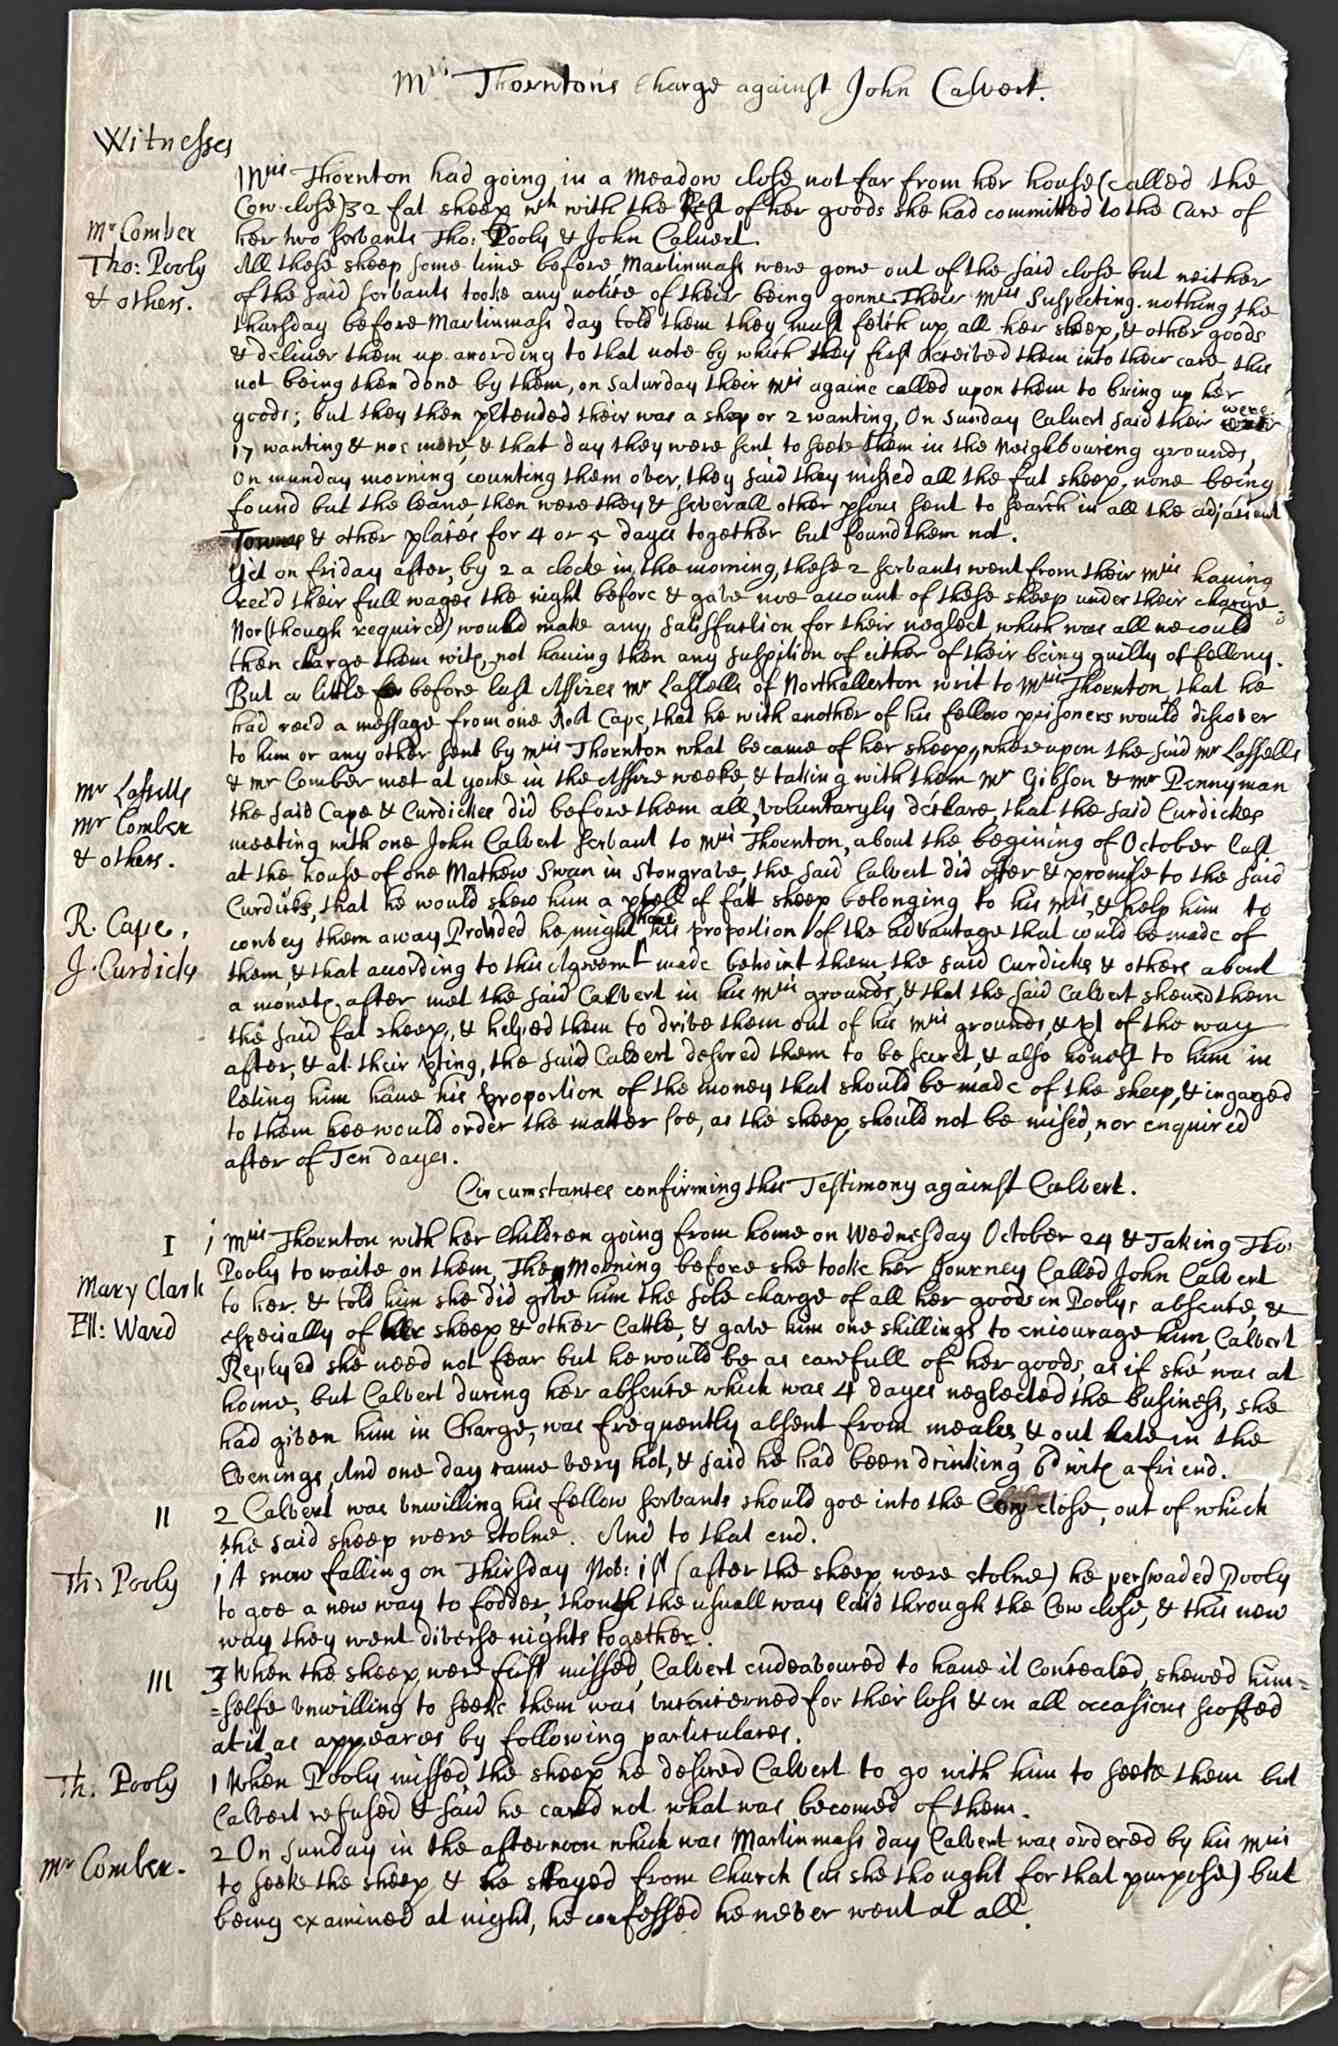 Mris Thorntons Charge against John Calvert.
Witnesses
Mris Thornton had going in a Meadow close not far from her house (called the
Cow close) 32 fat sheep wch with the Rest of her goods she had committed to the Care of
Mr Comber
her two servants Tho: Pooly & John Calvert.
Tho: Pooly
All these sheep some time before Martinmass were gone out of the said close but neither
& others.
of the said servants tooke any notice of their being gonne. Their Mris Suspecting nothing the
thursday before Martinmass day told them they must fetch up all her sheep, & other goods
& deliver them up according to that note by which they first received them into their care, this
not being then done by them, on Saturday their Mris againe called upon them to bring up her
goods; but they then ptended their was a shep or 2 wanting, On Sunday Calvert said their were
17 wanting & noe more, & that day they were sent to seeke them in the Neighboureing grounds,
On munday morning counting them over, they said they missed all the fat sheep, none being
found but the leane, then were they & severall other psons sent to search in all the adjacent
Townes & other places for 4 or 5 dayes together but found them not.
Yet on friday after, by 2 a clocke in the morning, these 2 servants went from their Mris having
rec'd their full wages the night before & gave noe account of these sheep under their charge
Nor (though required) would make any satisfaction for their neglect, which was all we could
then charge them with, not having then any suspition of either of their being guilty of fellony.
But a little before last Assizes Mr Lassells of Northallerton writ to Mris Thornton, that he
had rec'd a message from one Robt Cape, that he with another of his fellow prisoners would discover
to him or any other sent by Mris Thornton what became of her sheep, whereupon the said Mr Lassells
Mr Lassells
& Mr Comber met at yorke in the Assize weeke, & taking with them Mr Gibson & Mr Pennyman
Mr Comber
the said Cape & Curdickes did before them all, voluntaryly declare, that the said Curdickes
& others.
meeting with one John Calvert servant to Mris Thornton, about the begining of October last
at the house of one Mathew Swan in Stongrave, the said Calvert did offer & promise to the said
R. Cape,
Curdicks, that he would shew him a pcell of fatt sheep belonging to his Mris, & help him to
convey them away Provided he might have his proportion of the advantage that could be made of
J. Curdicks
them, & that according to this Agreemt made betwixt them, the said Curdicks & others about
a moneth after met the said Calvert in his Mris grounds, & that the said Calvert shewed them
the said fat sheep, & helped them to drive them out of his Mris grounds, & pt of the way
after, & at their pting, the said Calvert desired them to be secret, & also honest to him in
leting him have his proportion of the money that should be made of the sheep, & ingaged
to them hee would order the matter soe, as the sheep should not be missed, nor enquired
after of Ten dayes.
Circumstances confirming this Testimony against Calvert.
I
1 Mris Thornton with her Children going from home on Wednesday October 24 & Taking Tho:
Pooly to waite on them, The Morning before she tooke her Journey Called John Calvert
Mary Clark
to her. & told him she did give him the sole charge of all her goods in Poolys absence, &
Ell: Ward
especially of her sheep & other Cattle, & gave him one shillings to encourage him, Calvert
Replyed she need not fear but he would be as carefull of her goods, as if she was at
home, but Calvert during her absence which was 4 dayes neglected the business, she
had given him in Charge, was frequently absent from meales, & out late in the
Evenings, And one day came very hot, & said he had been drinking 6d with a friend.
II
2 Calvert was unwilling his fellow servants should goe into the Cow close, out of which
the said sheep were stolne. And to that end.
Th: Pooly
1 A snow falling on Thirsday Nov: 1st (after the sheep were stolne) he perswaded Pooly
to goe a new way to fodder, though the usuall way laid through the Cow close, & this new
way they went diverse nights together.
III
3 When the sheep were first missed, Calvert endeavoured to have it Concealed, shewed him=
=selfe unwilling to seeke them was unconcerned for their loss & on all occasions scoffed
at it, as appeares by following particulares.
Th. Pooly
1 When Pooly missed the sheep he desired Calvert to go with him to seeke them but
Calvert refused & said he cared not what was becomed of them.
2 On Sunday in the afternoon which was Martinmass day Calvert was ordered by his Mris
Mr Comber.
to seeke the sheep & he stayed from Church (as she thought for that purpose) but
being examined at night, he confessed he never went at all.